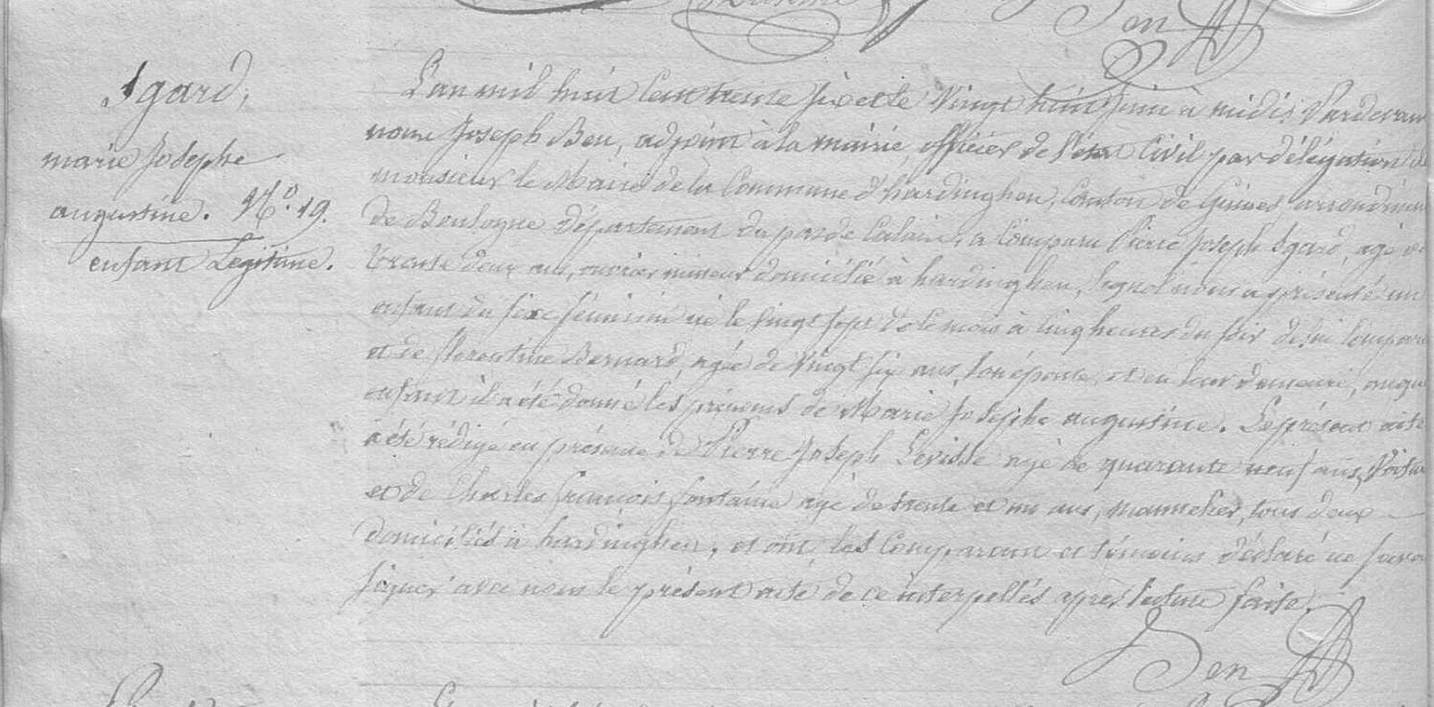 Den
Igard,
marie Josephe
augustine. N.º 19.
enfant Légitime.
L'an mil huit Cent trente six et le Vingt huit Juin à midi, Pardevant
nous Joseph Ben, adjoint à la mairie officier de l'état Civil par délégation de
monsieur le Maire de la Commune d'hardinghen, Canton de Guines, arrondiment
de Boulogne département du pas de Calais, a Comparu Pierre Joseph Igard, agé de
trente deux ans, ouvrier mineur domicilié à hardinghen, Lequel nous a présenté un
enfant du sexe féminin né le Vingt sept de ce mois à Cinq heures du soir de lui Comparant
et de florentine Bernard, agée de Vingt six ans, son épouse, et en leur demeure, auquel
enfant il a été donné les prénoms de Marie Josephe augustine. Le présent acte
a été rédigé en présence de Pierre Joseph Levisse agé de quarante neuf ans,
et de Charles françois fontaine agé de trente et un ans, tous deux
domiciliés à hardinghen, et ont les Comparant et témoins déclaré ne savoir
signer avec nous le présent acte de ce interpellés après lecture faite.
Den